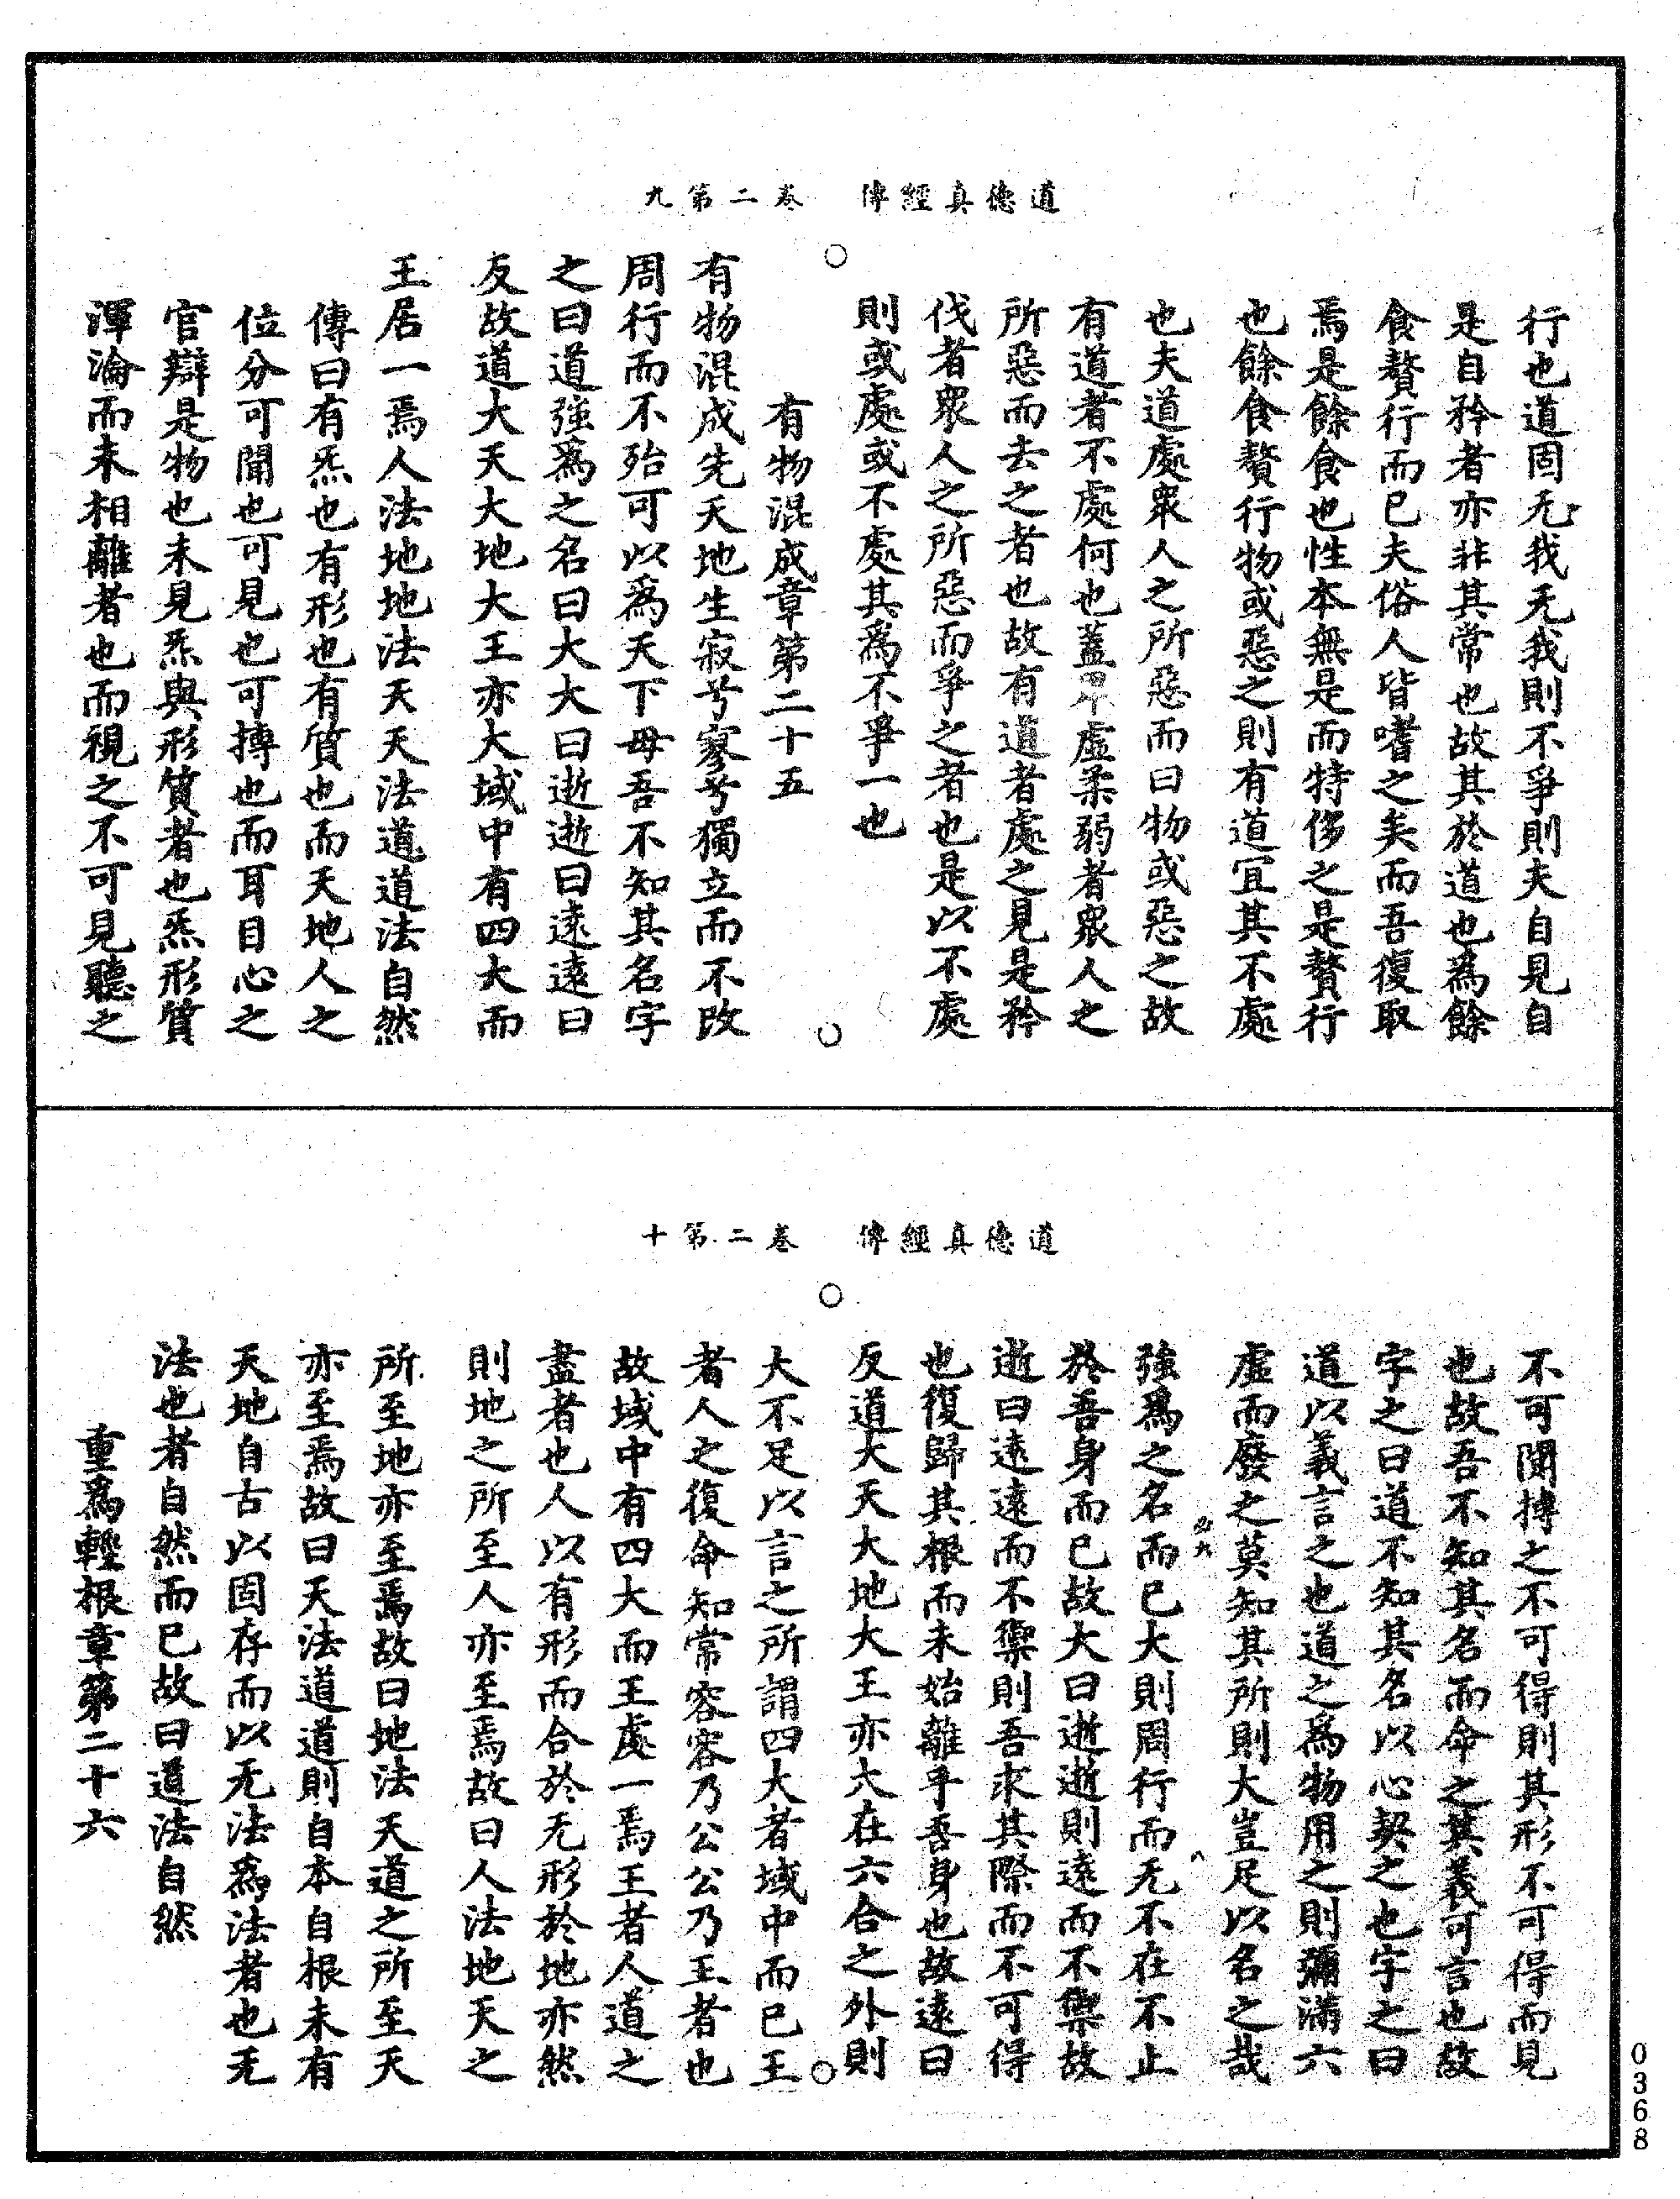 道德真經傳　卷二第九
行也道固无我无我則不爭則夫自見自
是自矜者亦非其常也故其於道也為餘
食贅行而已夫俗人皆嗜之矣而吾復取
焉是餘食也性本無是而特侈之是贅行
也餘食贅行物或惡之則有道宜其不處
也夫道處衆人之所惡而曰物或惡之故
有道者不處何也蓋卑虛柔弱者衆人之
所惡而去之者也故有道者處之見是矜
伐者衆人之所惡而爭之者也是以不處
則或處或不處其為不爭一也
有物混成章第二十五
有物混成先天地生寂兮寥兮獨立而不改
周行而不殆可以為天下母吾不知其名字
之曰道強為之名曰大大曰逝逝曰遠遠曰
反故道大天大地大王亦大域中有四大而
王居一焉人法地地法天天法道道法自然
傳曰有炁也有形也有質也而天地人之
位分可聞也可見也可搏也而耳目心之
官辯是物也未見炁與形質者也炁形質
渾淪而未相離者也而視之不可見聽之
道德真經傳　卷二第十
不可聞搏之不可得則其形不可得而見
也故吾不知其名而命之其義可言也故
字之曰道不知其名以心契之也字之曰
道以義言之也道之為物用之則彌滿六
虛而廢之莫知其所則大豈足以名之哉
強為之名而已大則周行而无不在不止
於吾身而已故大曰逝逝則遠而不禦故
逝曰遠遠而不禦則吾求其際而不可得
也復歸其根而未始離乎吾身也故遠曰
反道大天大地大王亦大在六合之外則
大不足以言之所謂四大者域中而已王
者人之復命知常容容乃公公乃王王者也
故域中有四大而王處一焉王者人道之
盡者也人以有形而合於无形於地亦然
則地之所至人亦至焉故曰人法地天之
所至地亦至焉故曰地法天道之所至天
亦至焉故曰天法道道則自本自根未有
天地自古以固存而以无法為法者也无
法也者自然而已故曰道法自然
重為輕根章第二十六
0368